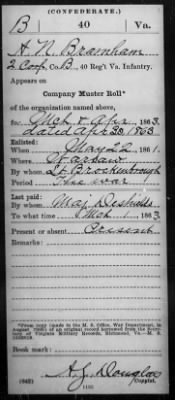 (CONFEDERATE.)
B 40 Va.
H. N. Bramham
2 Corp, Co. B, 40 Reg't Va. Infantry.
Appears on
Company Muster Roll*
of the organization named above,
for Mch & Apr, 1863.
dated Apr 30, 1863
Enlisted:
When May 22, 1861.
Where Warsaw
By whom Lt Brockenbrough
Period The war
Last paid:
By whom Maj Deshields
To what time Mch 1, 1863
Present or absent Present
Remarks:
*From copy (made in the M. S. Office, War Department, in
August, of an original record borrowed from the
of Virginia Military Records, Richmond, Va.—M. S.
Book mark:
(642) A. J. Douglas
Copyist.